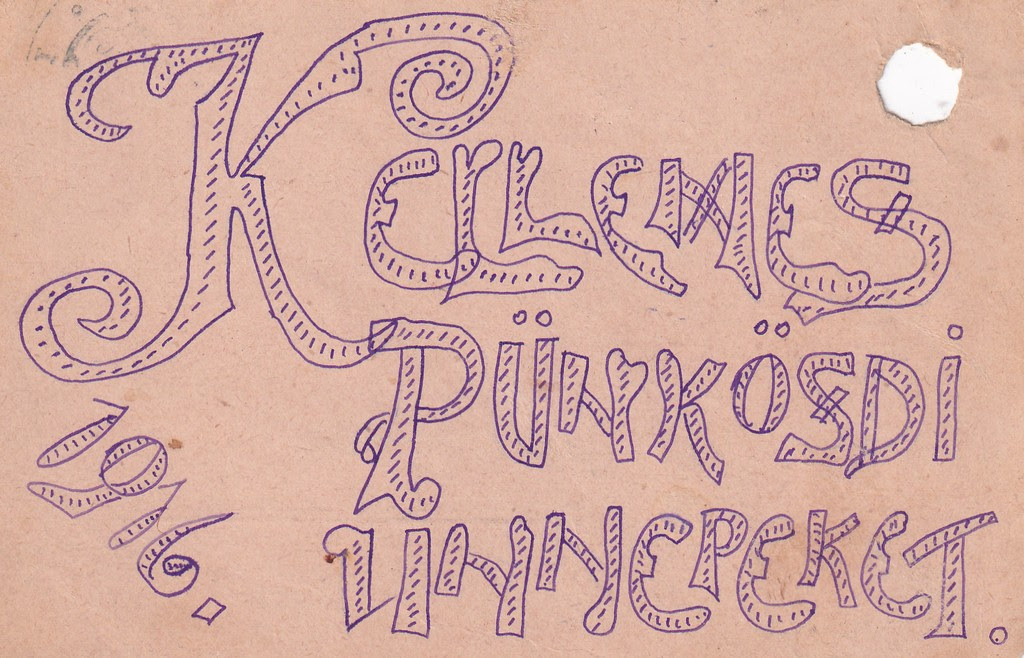 KELLEMES
PÜNKÖSDI
ÜNNEPEKET.
1916.